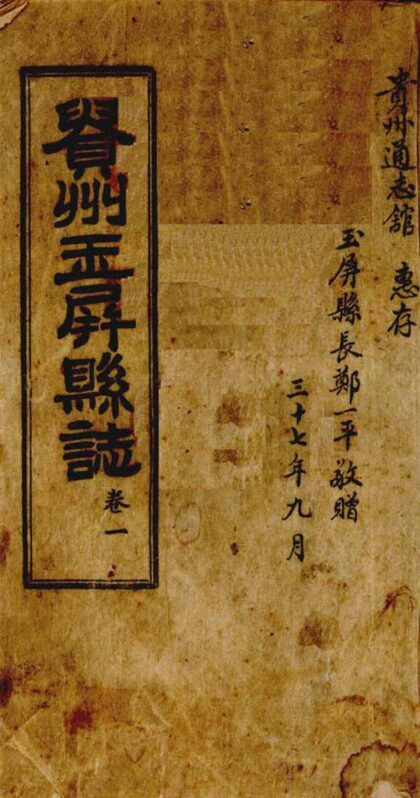 貴州通志舘　惠存
玉屏縣長鄭一平敬贈
三十七年九月
貴州玉屏縣誌
卷一